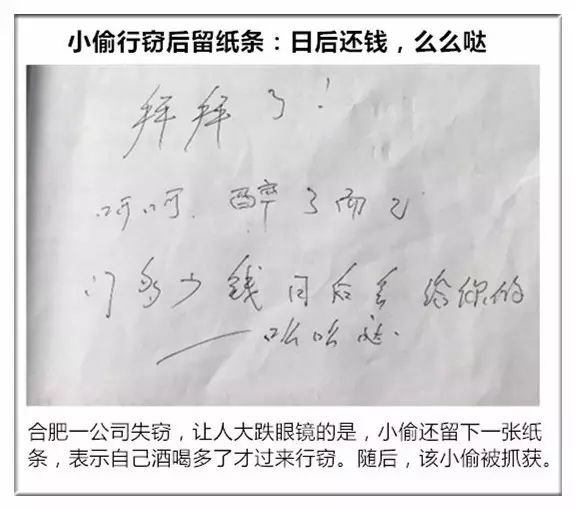 小偷行窃后留纸条：日后还钱，么么哒
拜拜了！
呵呵，醉了而已
门多少钱日后会给你的
——么么哒.
合肥一公司失窃，让人大跌眼镜的是，小偷还留下一张纸
条，表示自己酒喝多了才过来行窃。随后，该小偷被抓获。